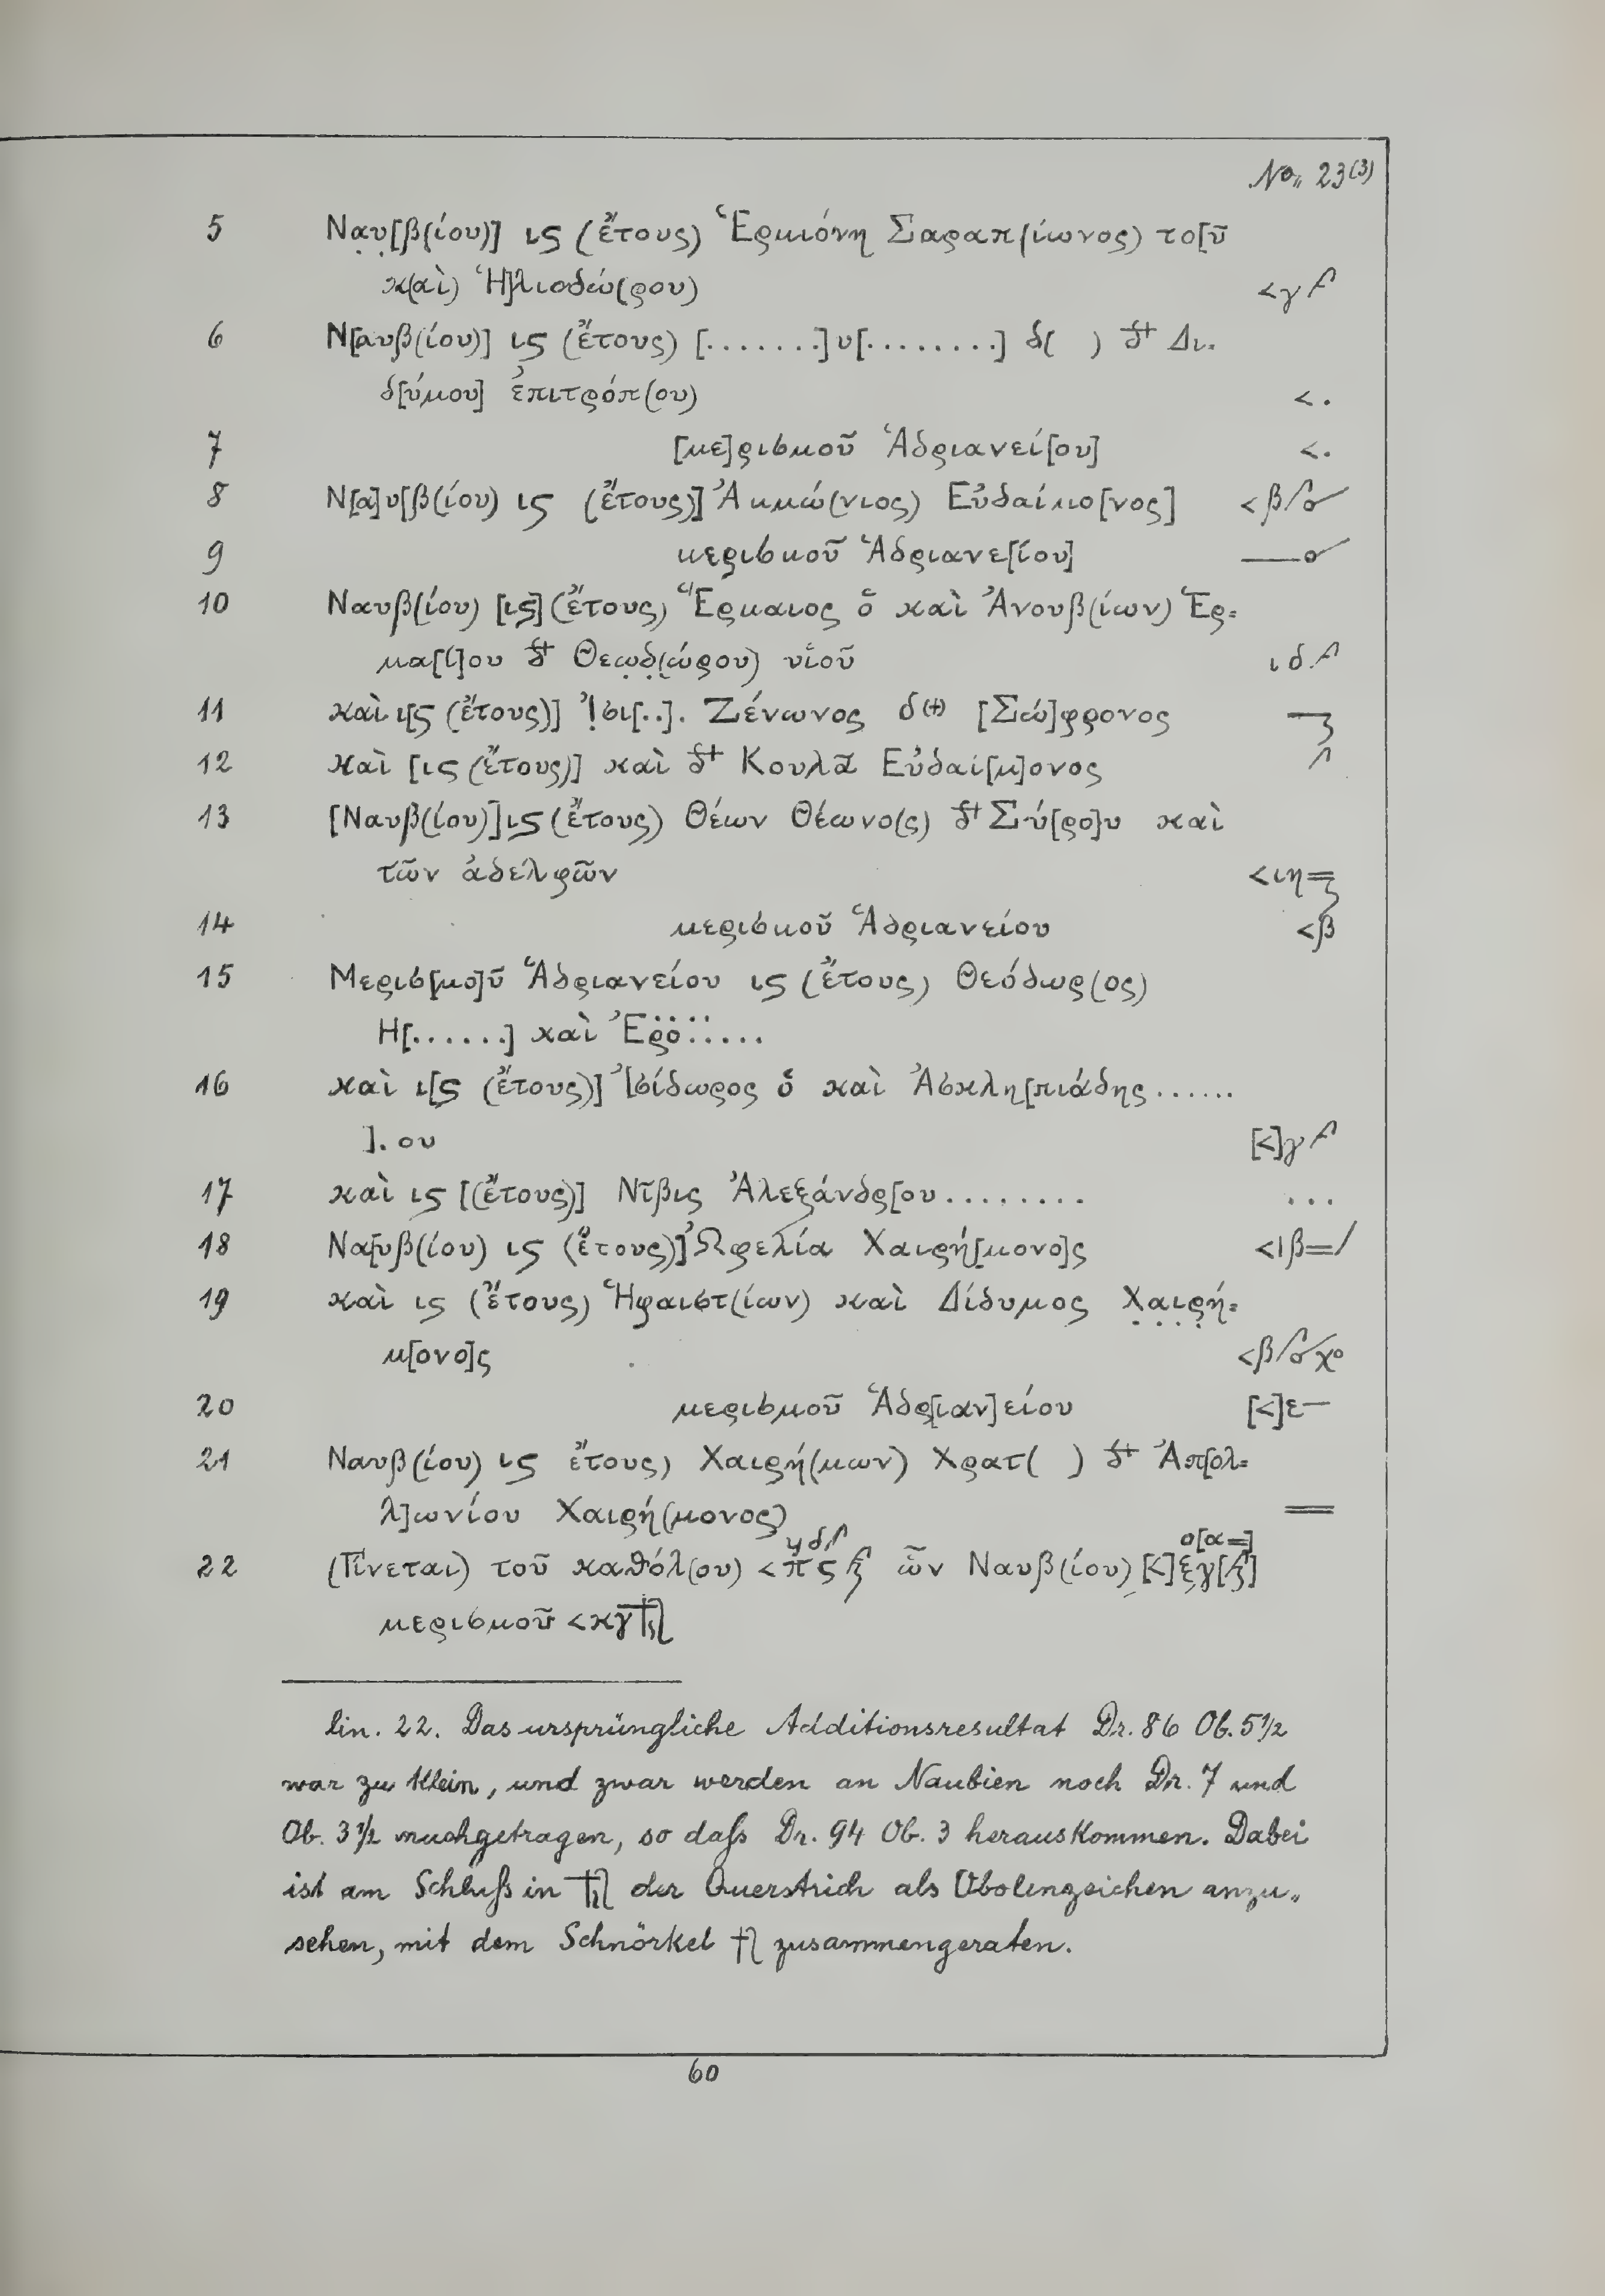 No. 23(3)
5 Ναυ[β(ίου)] ις (ἔτους) Ἑρμιόνη Σαραπ(ίωνος) το[ῦ
κ(αὶ) Ἡ]λιοδώ(ρου) <γ
6 Ν[αυβ(ίου)] ις (ἔτους) [.......]υ[.........] δ( ) δ+ Δι.
δ[ύμου] ἐπιτρόπ(ου) <.
7 [με]ρισμοῦ Ἁδριανεί[ου] <.
8 Ν[α]υ[β(ίου) ις (ἔτους)] Ἀμμώ(νιος) Εὐδαίμο[νος] <β
9 μερισμοῦ Ἁδριανε[ίου] —
10 Ναυβ(ίου) [ις] (ἔτους) Ἕρμαιος ὁ καὶ Ἀνουβ(ίων) Ἑρ=
μα[ί]ου δ+ Θεωδ(ώρου) υἱοῦ ιδ
11 καὶ ι[ς (ἔτους)] Ἰσι[..]. Ζένωνος δ(+) [Σώ]φρονος
12 καὶ [ις (ἔτους)] καὶ δ+ Κουλᾶ Εὐδαί[μ]ονος
13 [Ναυβ(ίου)] ις (ἔτους) Θέων Θέωνο(ς) δ+ Σύ[ρο]υ καὶ
τῶν ἀδελφῶν <ιη=
14 μερισμοῦ Ἁδριανείου <β
15 Μερισ[μο]ῦ Ἁδριανείου ις (ἔτους) Θεόδωρ(ος)
Η[......] καὶ Ἐρο.....
16 καὶ ι[ς (ἔτους)] Ἰσίδωρος ὁ καὶ Ἀσκλη[πιάδης ......
]. ου [<]γ
17 καὶ ις [(ἔτους)] Νῖβις Ἀλεξάνδρ[ου ........ ...
18 Να[υβ(ίου) ις (ἔτους)] Ὠφελία Χαιρή[μονο]ς <ιβ=/
19 καὶ ις (ἔτους) Ἡφαιστ(ίων) καὶ Δίδυμος Χαιρή=
μ[ονο]ς <β χο
20 μερισμοῦ Ἁδρ[ιαν]είου [<]ε—
21 Ναυβ(ίου) ις ἔτους) Χαιρή(μων) Χρατ( ) δ+ Ἀπ[ολ=
λ]ωνίου Χαιρή(μονος) =
22 (Γίνεται) τοῦ καθόλ(ου) <πς ὧν Ναυβ(ίου) [<]ξγ
μερισμοῦ <κγ
lin. 22. Das ursprüngliche Additionsresultat Dr. 86 Ob. 5½
war zu klein, und zwar werden an Naubien noch Dr. 7 und
Ob. 3½ nachgetragen, so daß Dr. 94 Ob. 3 herauskommen. Dabei
ist am Schluß in der Querstrich als Obolenzeichen anzu„
sehen, mit dem Schnörkel zusammengeraten.
60